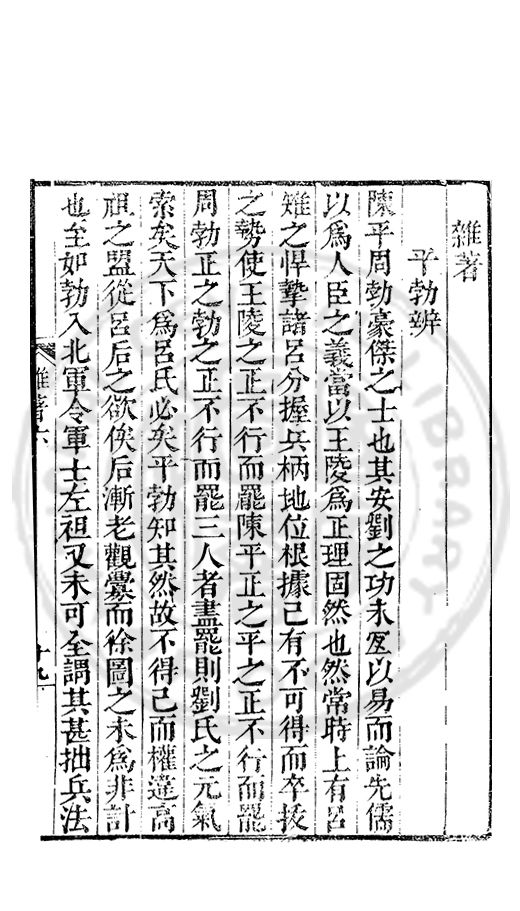 雜著
平勃辨
陳平周勃豪傑之士也其安劉之功未宜以易而論先儒
以爲人臣之義當以王陵爲正理固然也然當時上有呂
雉之悍摯諸呂分握兵柄地位根據已有不可得而卒拔
之勢使王陵之正不行而罷陳平正之平之正不行而罷
周勃正之勃之正不行而罷三人者盡罷則劉氏之元氣
索矣天下爲呂氏必矣平勃知其然故不得已而權違高
祖之盟從呂后之欲俟后漸老觀釁而徐圖之未爲非計
也至如勃入北軍令軍士左袒又未可全謂其甚拙兵法
雜著六
十九
LIBRARY